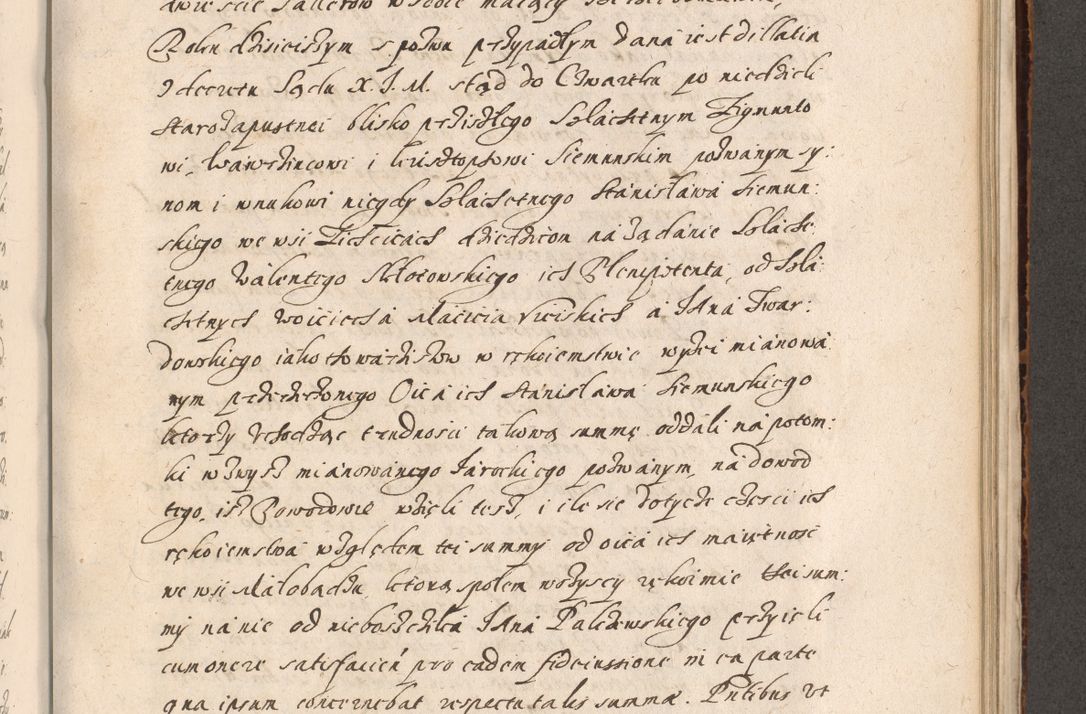 Roku dzisieiszym z pozwu przypadłym dana iest dillatia
z decretu Sądu X. J. M. stąd do Czwartku po niedzieli
starozapustnei blisko przyszłego Szlachetnym Zigmunto
wi, Wawrzincowi i Krisztophowi Siemunskim pozwanym sy:
nom i wnukowi niegdy Szlachetnego Stanisława Siemun:
skiego we wsi Zieścicach dziedzicom na żądanie Szlache
tnego Walentego Skłotowskiego ich Plenipotenta, od Szla:
chetnych Woiciecha Macieia Ruiskich a Jana Twar:
dowskiego iako towarziszow w rękoiemstwie wyżei mianowa
nym przerzeczonego Oica ich Stanisława Siemunskiego
ktorzy uchodząc trudnosci takową summę oddali na potom:
ki wzwysz mianowanego Jarockiego pozwanym, na dowod
tego, isz Powodowie wzięli tesz, i ile sie dotycze częsci ich
rękoiemstwa względem tei summy od oica ich maiętnosć
we wsi Małobądzu, ktorą społem wszyscy rękoimie tei sum:
my na nie od nieboszczika Jana Palczewskiego przyięli
cum onere satisfacień pro eadem fideiussione in ea parte
qua ipsum concernebat respectu talis summæ. Pntibus ut